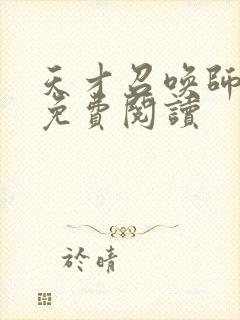 天才召喚師
免費閱讀
於晴